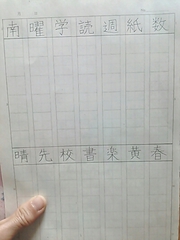 南曜学読週紙数
晴先校書楽黄春